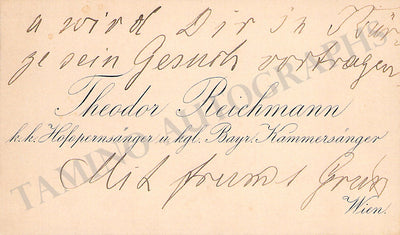 a wird Dir in Kür-
ze sein Gesuch vortragen.
Theodor Reichmann
k. k. Hofopernsänger u. kgl. Bayr. Kammersänger
Mit freundl Gruß
Wien.
TAMINO AUTOGRAPHS